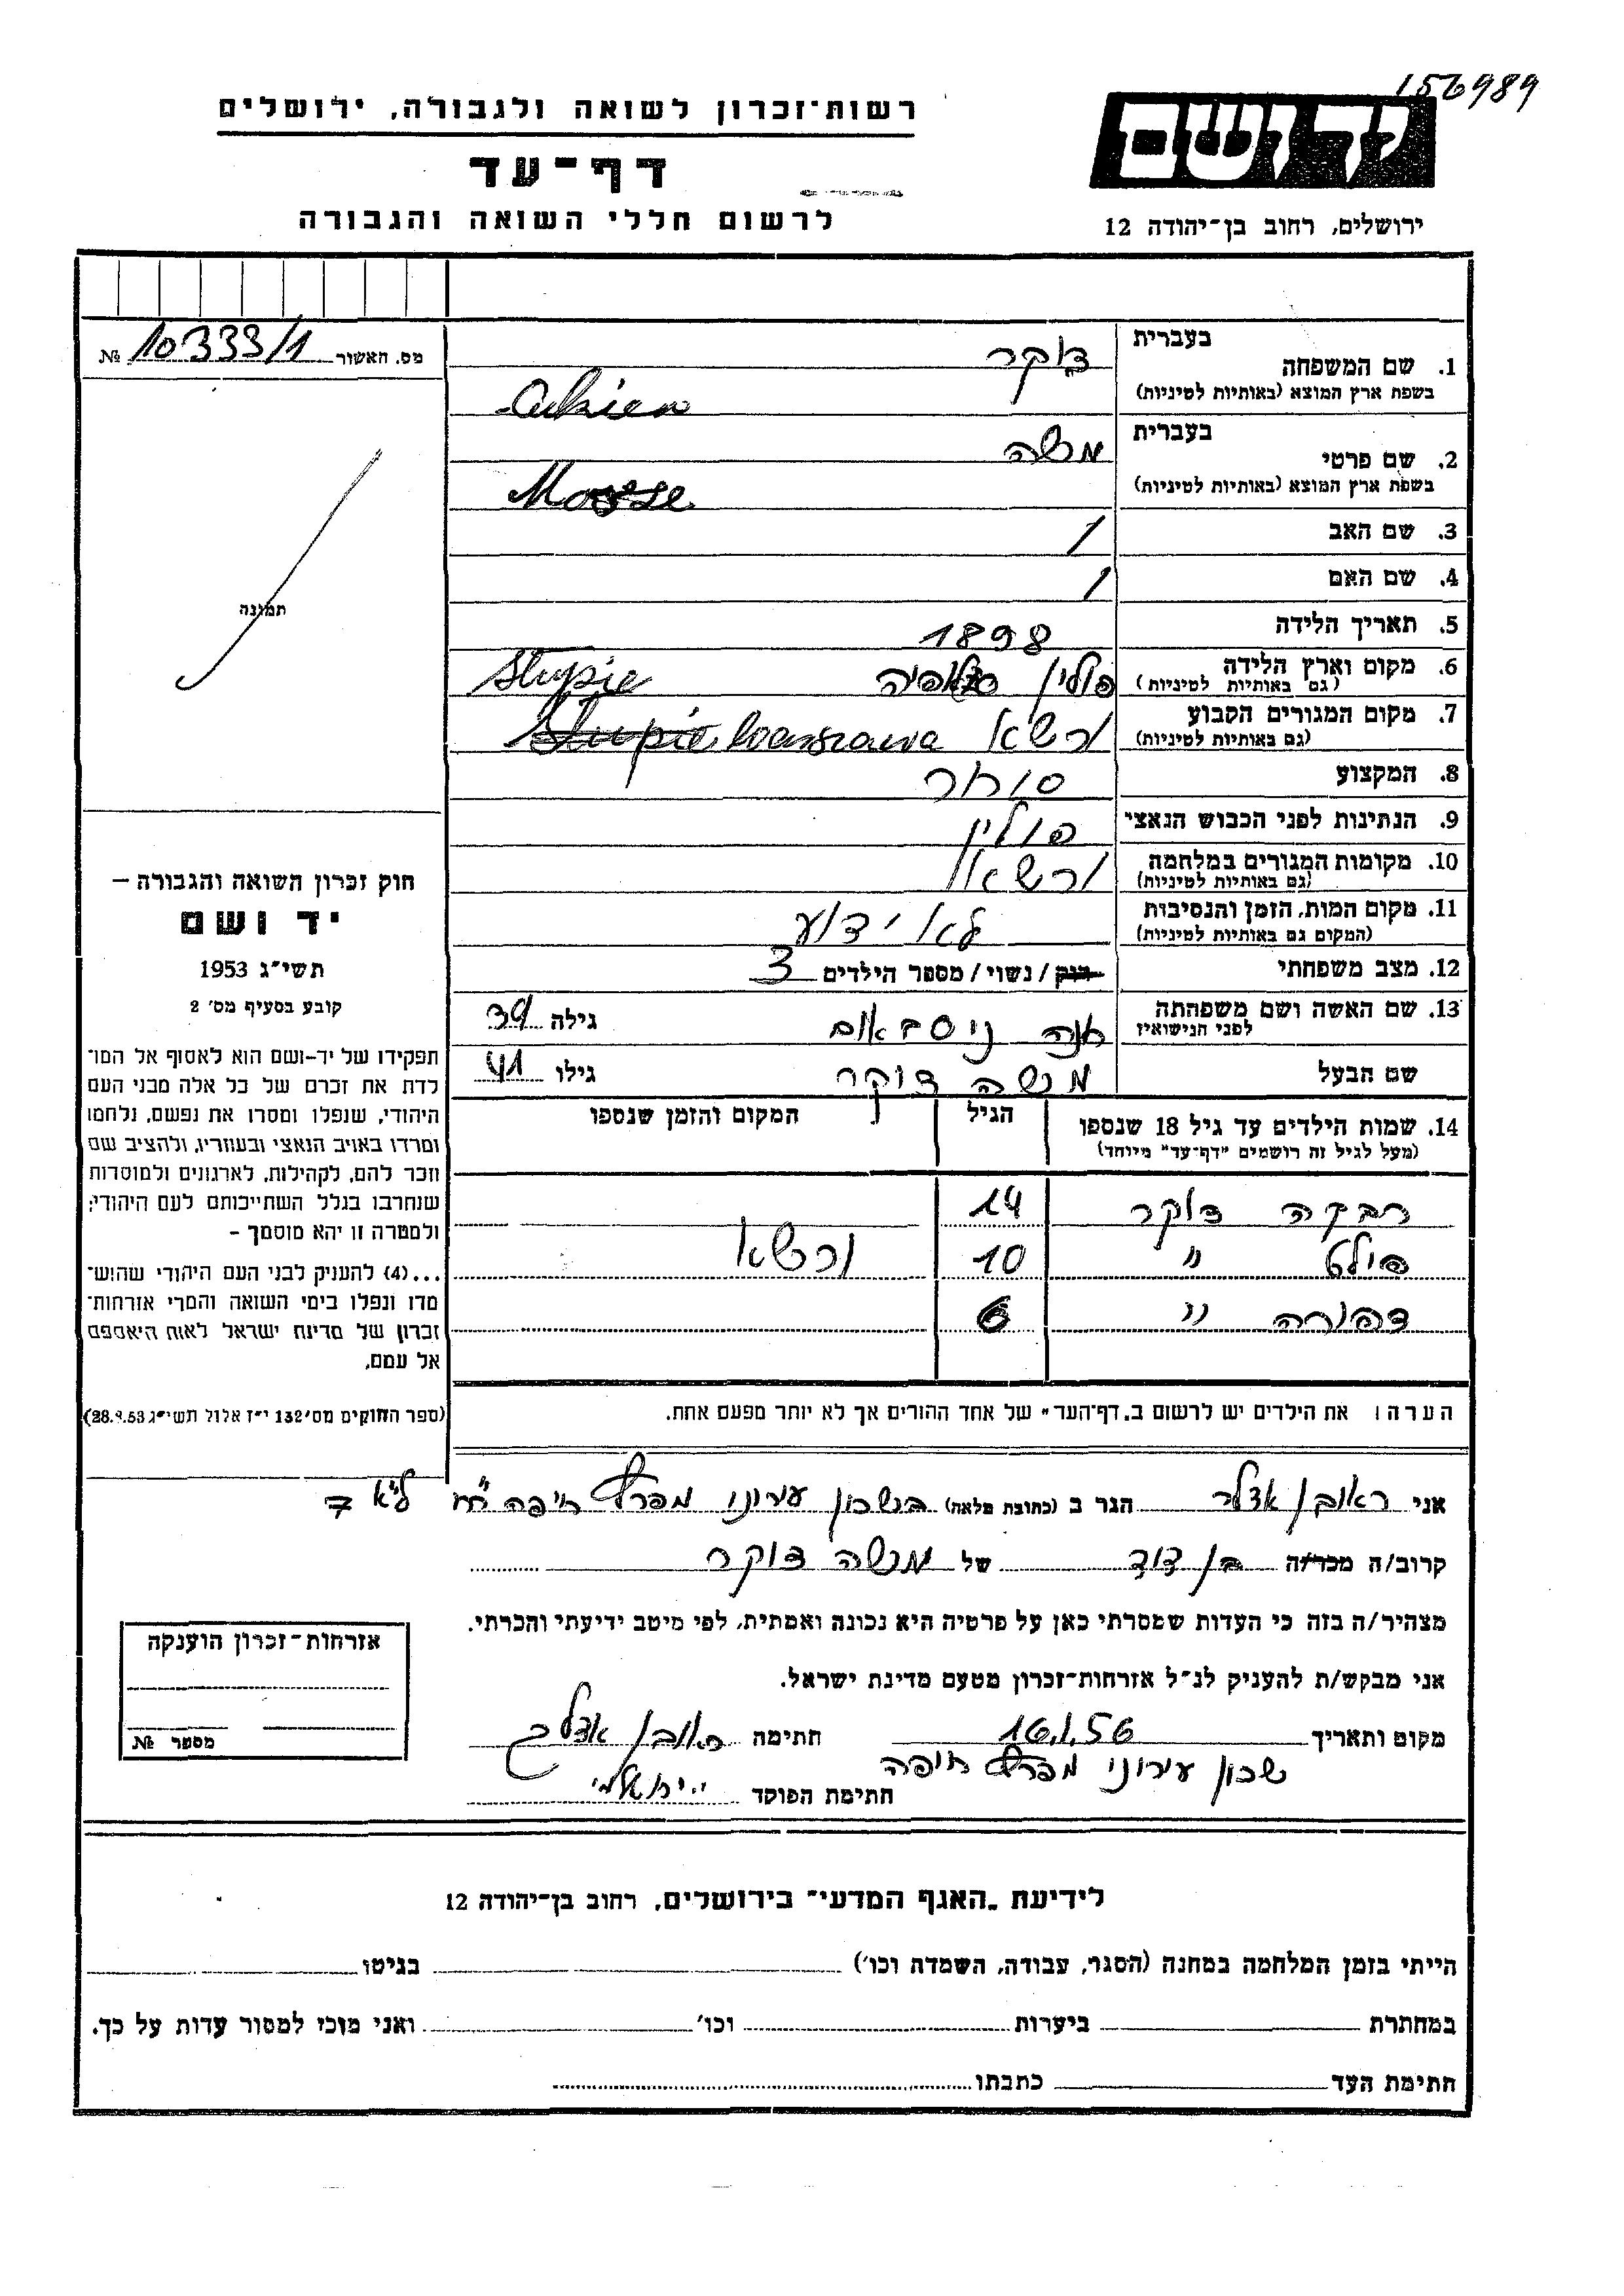 156989
רשות־זכרון לשואה ולגבורה, ירושלים
יד ושם
דף־עד
לרשום חללי השואה והגבורה
ירושלים, רחוב בן־יהודה 12
מס. האשור 10333/1 №
תמונה
1. שם המשפחה
בעברית צוקר
בשפת ארץ המוצא (באותיות לטיניות)
2. שם פרטי
בעברית מנשה
בשפת ארץ המוצא (באותיות לטיניות)
3. שם האב /
4. שם האם /
5. תאריך הלידה 1898
6. מקום וארץ הלידה פולין סלופיה Slupie
(גם באותיות לטיניות)
7. מקום המגורים הקבוע ורשא Warszawa
(גם באותיות לטיניות)
8. המקצוע סוחר
9. הנתינות לפני הכבוש הנאצי פולין
10. מקומות המגורים במלחמה ורשא
(גם באותיות לטיניות)
11. מקום המות, הזמן והנסיבות לא ידוע
(המקום גם באותיות לטיניות)
12. מצב משפחתי רוק / נשוי / מספר הילדים 3
13. שם האשה ושם משפחתה חנה ניסבאום גילה 39
לפני הנישואין
שם הבעל מנשה צוקר גילו 41
14. שמות הילדים עד גיל 18 שנספו הגיל המקום והזמן שנספו
(מעל לגיל זה רושמים "דף־עד" מיוחד)
רבקה צוקר 14
" 10 ורשא
צפורה " 6
הערה: את הילדים יש לרשום ב„דף־העד" של אחד ההורים אך לא יותר מפעם אחת.
חוק זכרון השואה והגבורה –
יד ושם
תשי"ג 1953
קובע בסעיף מס' 2
תפקידו של יד-ושם הוא לאסוף אל המו־
לדת את זכרם של כל אלה מבני העם
היהודי, שנפלו ומסרו את נפשם, נלחמו
ומרדו באויב הנאצי ובעוזריו, ולהציב שם
וזכר להם, לקהילות, לארגונים ולמוסדות
שנחרבו בגלל השתייכותם לעם היהודי;
ולמטרה זו יהא מוסמך –
...(4) להעניק לבני העם היהודי שהוש־
מדו ונפלו בימי השואה והמרי אזרחות־
זכרון של מדינת ישראל לאות היאספם
אל עמם.
(ספר החוקים מס' 132 י"ז אלול תשי"ג 28.8.53)
אני ראובן אדלר הגר ב (כתובת מלאה) בשכון עירוני מפרץ חיפה
קרוב/ה מכר/ה בן דוד של מנשה צוקר
מצהיר/ה בזה כי העדות שמסרתי כאן על פרטיה היא נכונה ואמתית, לפי מיטב ידיעתי והכרתי.
אני מבקש/ת להעניק לנ"ל אזרחות־זכרון מטעם מדינת ישראל.
מקום ותאריך 16.1.56 חתימה ראובן אדלר
שכון עירוני מפרץ חיפה
חתימת הפוקד
אזרחות־זכרון הוענקה
מספר №
לידיעת „האגף המדעי" בירושלים, רחוב בן־יהודה 12
הייתי בזמן המלחמה במחנה (הסגר, עבודה, השמדה וכו') בגיטו
במחתרת ביערות וכו' ואני מוכן למסור עדות על כך.
חתימת העד כתבתו